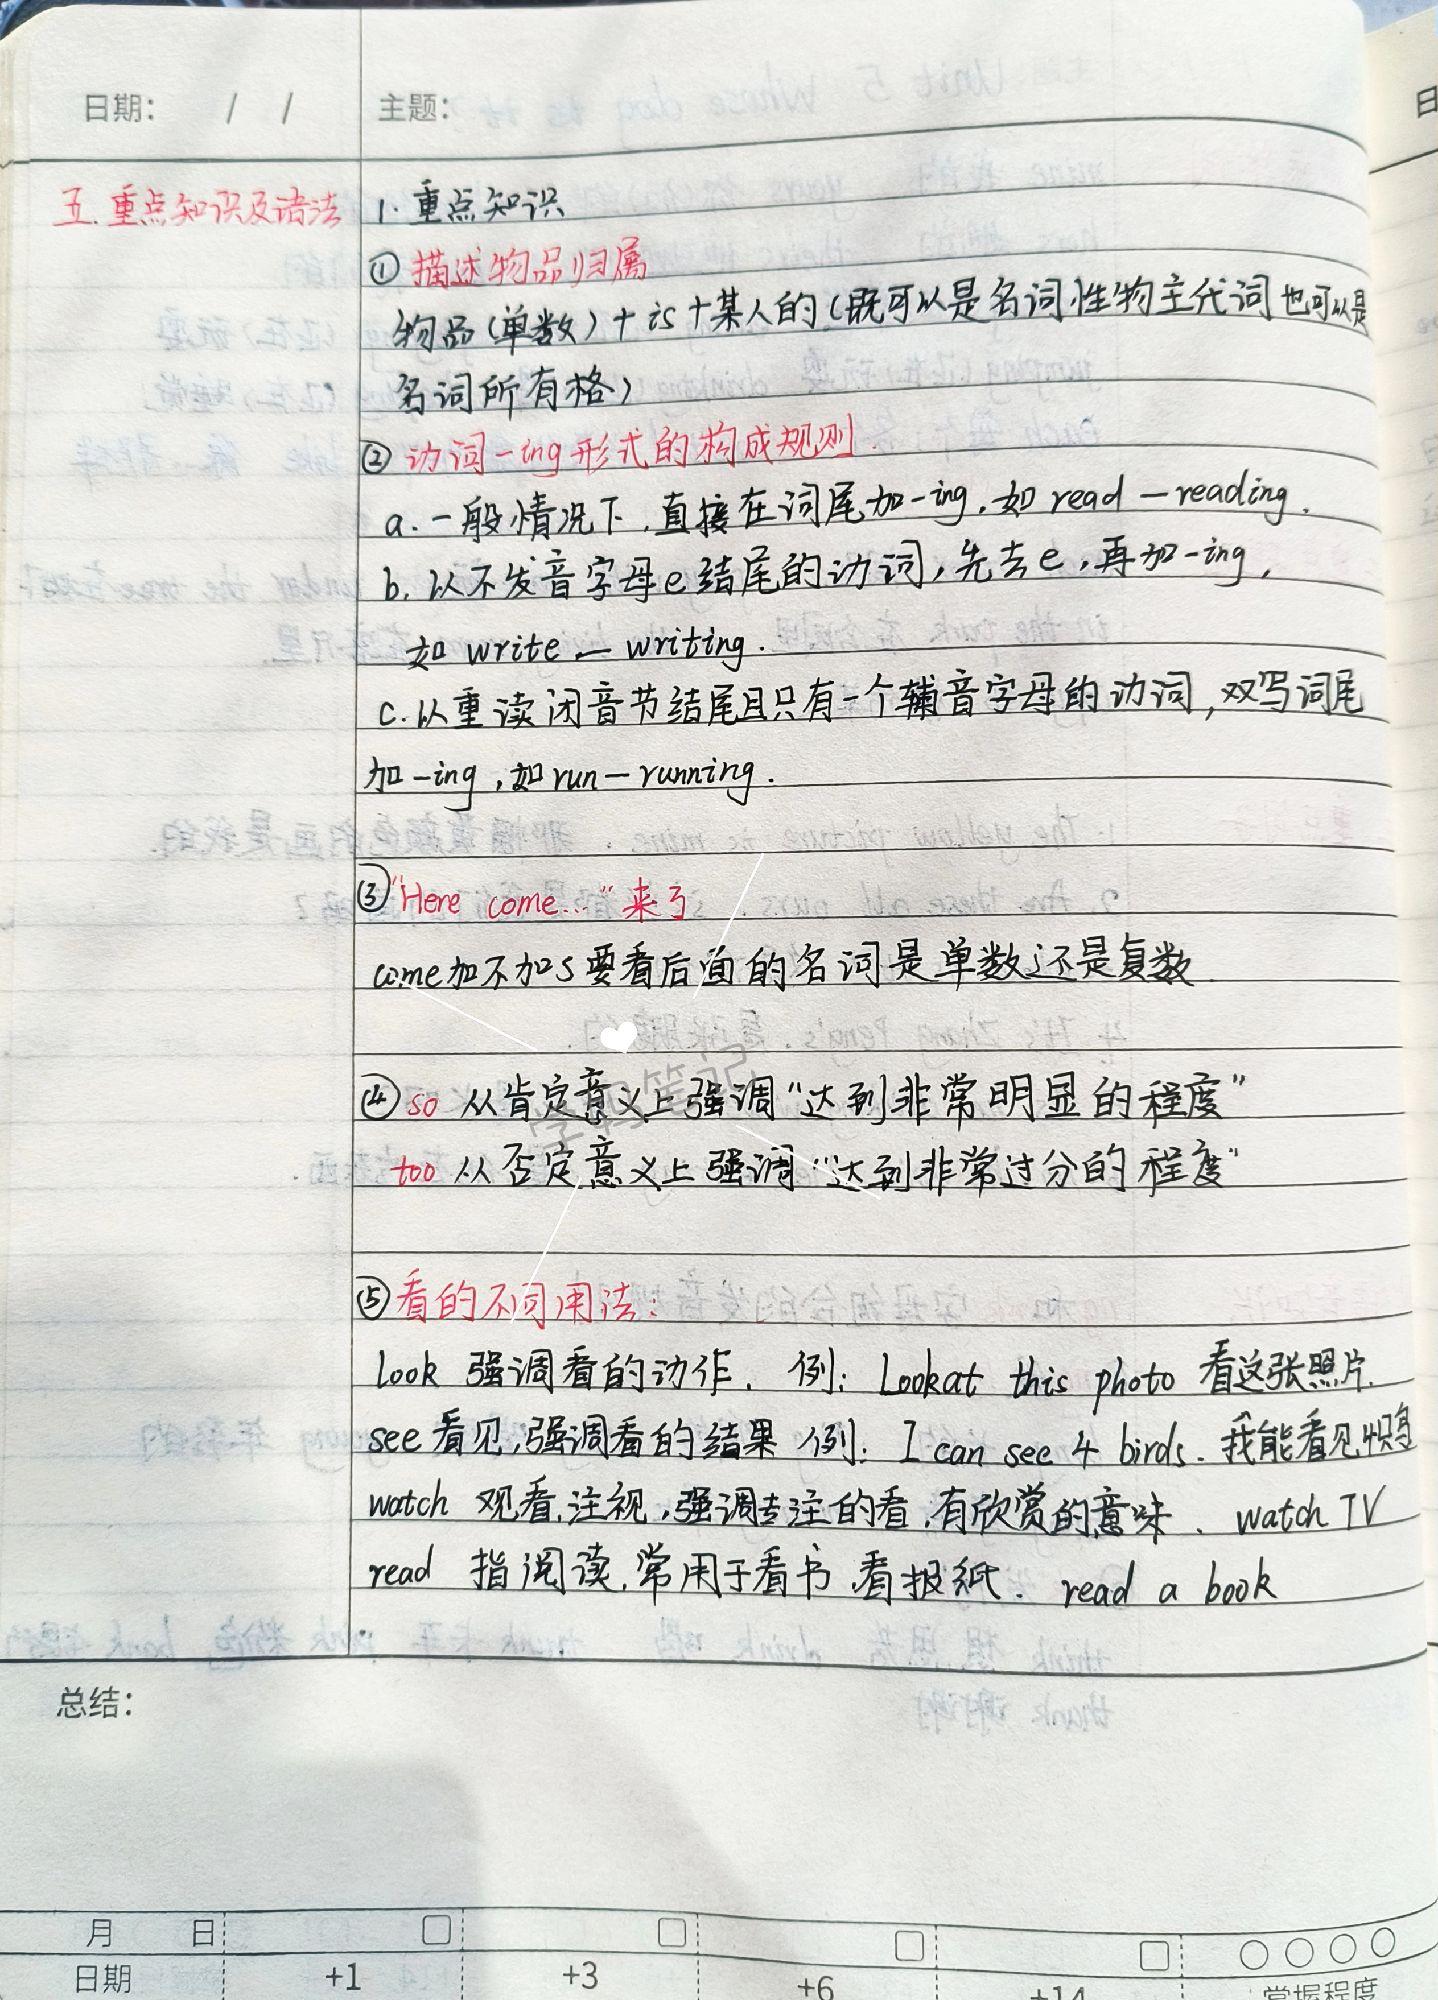 日期: / / 主题:
五.重点知识及语法
1.重点知识
①描述物品归属
物品(单数)+is+某人的(既可以是名词性物主代词也可以是
名词所有格)
②动词-ing形式的构成规则.
a.一般情况下,直接在词尾加-ing,如read—reading.
b.以不发音字母e结尾的动词,先去e,再加-ing,
如write—writing.
c.以重读闭音节结尾且只有一个辅音字母的动词,双写词尾
加-ing,如run—running.
③"Here come…"来了
come加不加s要看后面的名词是单数还是复数.
学习笔记
④so 从肯定意义上强调"达到非常明显的程度"
too 从否定意义上强调"达到非常过分的程度"
⑤看的不同用法:
look 强调看的动作. 例: Look at this photo 看这张照片.
see看见,强调看的结果 例: I can see 4 birds. 我能看见
watch 观看,注视,强调专注的看,有欣赏的意味. watch TV
read 指阅读,常用于看书,看报纸. read a book
总结:
月 日
日期 +1 +3 +6 +14 掌握程度